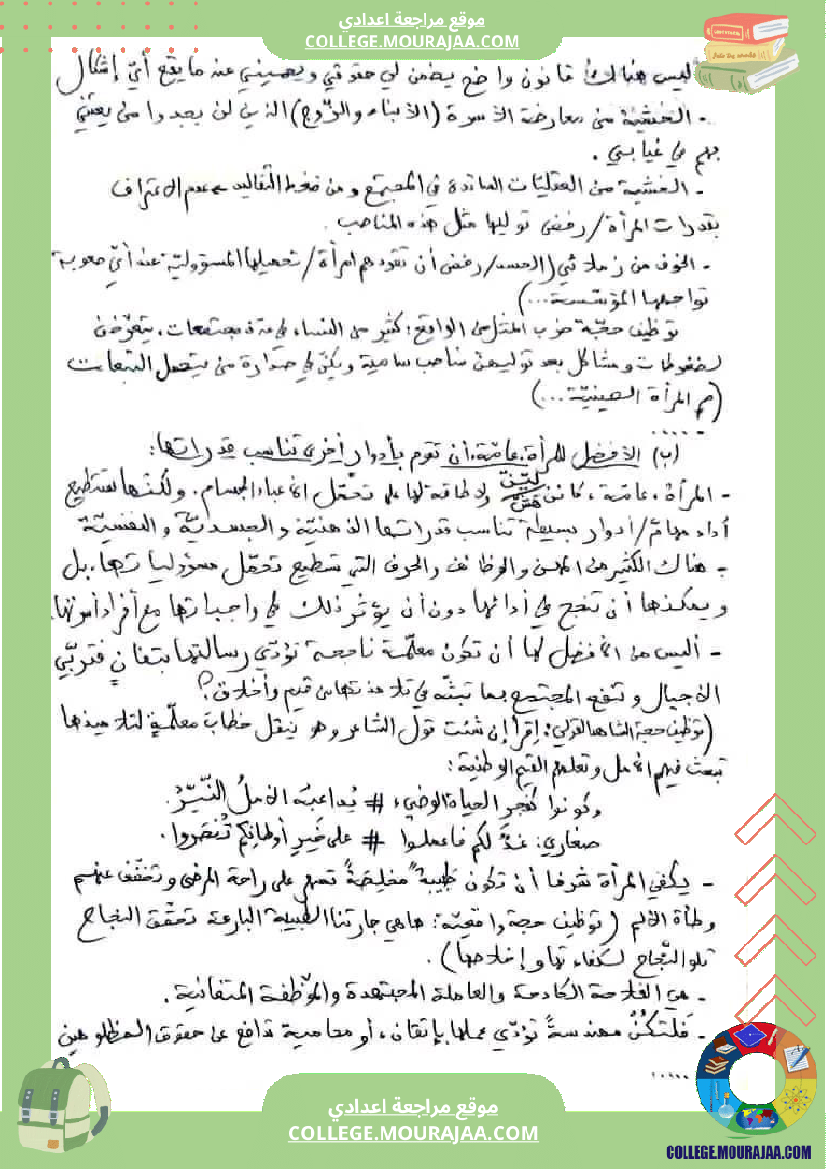 موقع مراجعة اعدادي
COLLEGE.MOURAJAA.COM
أليس هناك قانون واضح يضمن لي حقوقي ويحميني عند ما يقع أيّ إشكال
- الخشية من معارضة الأسرة (الأبناء والزّوج) الذين لن يجدوا من يعتني
بهم في غيابي.
- الخشية من العقليّات السائدة في المجتمع ومن ضغط التقاليد عدم الاعتراف
بقدرات المرأة/رفض توليها مثل هذه المناصب.
- الخوف من زملائي (الحسد/رفض أن تقودهم امرأة/تحميلها المسؤوليّة عند أيّ صعوبة
تواجهها المؤسّسة...)
توظيف حجّة ضرب المثل من الواقع: كثير من النساء في عدة مجتمعات، يتعرّضن
لضغوطات ومشاكل بعد توليهنّ مناصب سامية ويكنّ في صدارة من يتحمل التبعات
(م المرأة الصينيّة...)
......
(ب) الأفضل للمرأة، عامّة، أن تقوم بأدوار أخرى تناسب قدراتها:
- المرأة، عامّة، كائن ليّن هشّ ولا طاقة لها على تحمّل الأعباء الجسام. ولكنّها تستطيع
أداء مهامّ/أدوار بسيطة تناسب قدراتها الذهنيّة والجسديّة والنفسيّة
- هناك الكثير من المهن والوظائف والحرف التي تستطيع تحمّل مسؤولياتها، بل
ويمكنها أن تنجح في أدائها دون أن يؤثر ذلك في واجباتها مع أفراد أسرتها.
- أليس من الأفضل لها أن تكون معلّمة ناجحة تؤدّي رسالتها بتفانٍ فتربّي
الأجيال وتنفع المجتمع بما تبثّه في تلامذتها من قيم وأخلاق؟
(توظيف حجة الشاهد القولي: إقرأ إن شئت قول الشاعر وهو ينقل خطاب معلّمةٍ لتلاميذها
تبعث فيهم الأمل وتعلمهم القيم الوطنية:
وكونوا كفجرِ الحياة الوضيء # يُداعبُه الأملُ النَّيِّرُ.
صغاري: غدٌ لكم فاعملوا # على خيرِ أوطانِكم تُنصَروا.
- يكفي المرأة شرفا أن تكون طبيبةً مخلِصةً تسهر على راحة المرضى وتخفّف عنهم
وطأة الألم (توظيف حجة واقعيّة: هاهي جارتنا الطبيبة البارعة تحقّق النجاح
تلو النّجاح لكفاءتها وإخلاصها).
- هي الفلاحة الكادحة والعاملة المجتهدة والموظّفة المتفانية.
- فلتكُنْ مهندسةً تؤدّي عملها بإتقان، أو محامية تدافع عن حقوق المظلومين
......
موقع مراجعة اعدادي
COLLEGE.MOURAJAA.COM
COLLEGE.MOURAJAA.COM